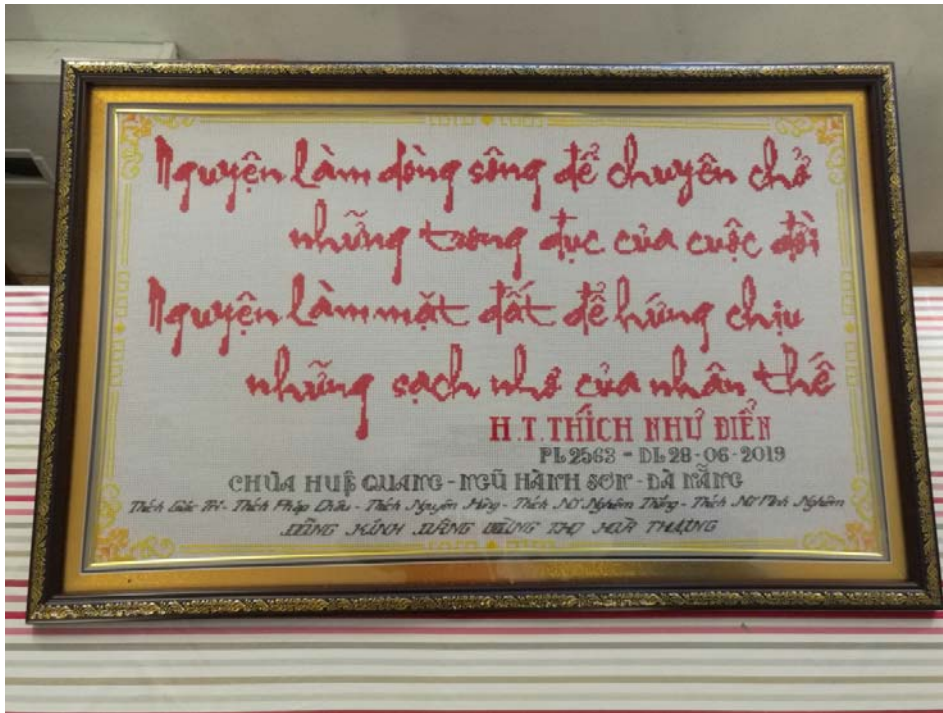 Nguyện làm dòng sông để chuyên chở
những trong đục của cuộc đời
Nguyện làm mặt đất để hứng chịu
những sạch nhơ của nhân thế
H.T.THÍCH NHƯ ĐIỂN
PL 2563 - DL 28-06-2019
CHÙA HUỆ QUANG - NGŨ HÀNH SƠN - ĐÀ NẴNG
Thích Giác Trí - Thích Pháp Châu - Thích Nguyên - Thích Nữ Nghiêm Thắng - Thích Nữ Nghiêm
ĐỒNG KÍNH DÂNG MỪNG THỌ HÒA THƯỢNG